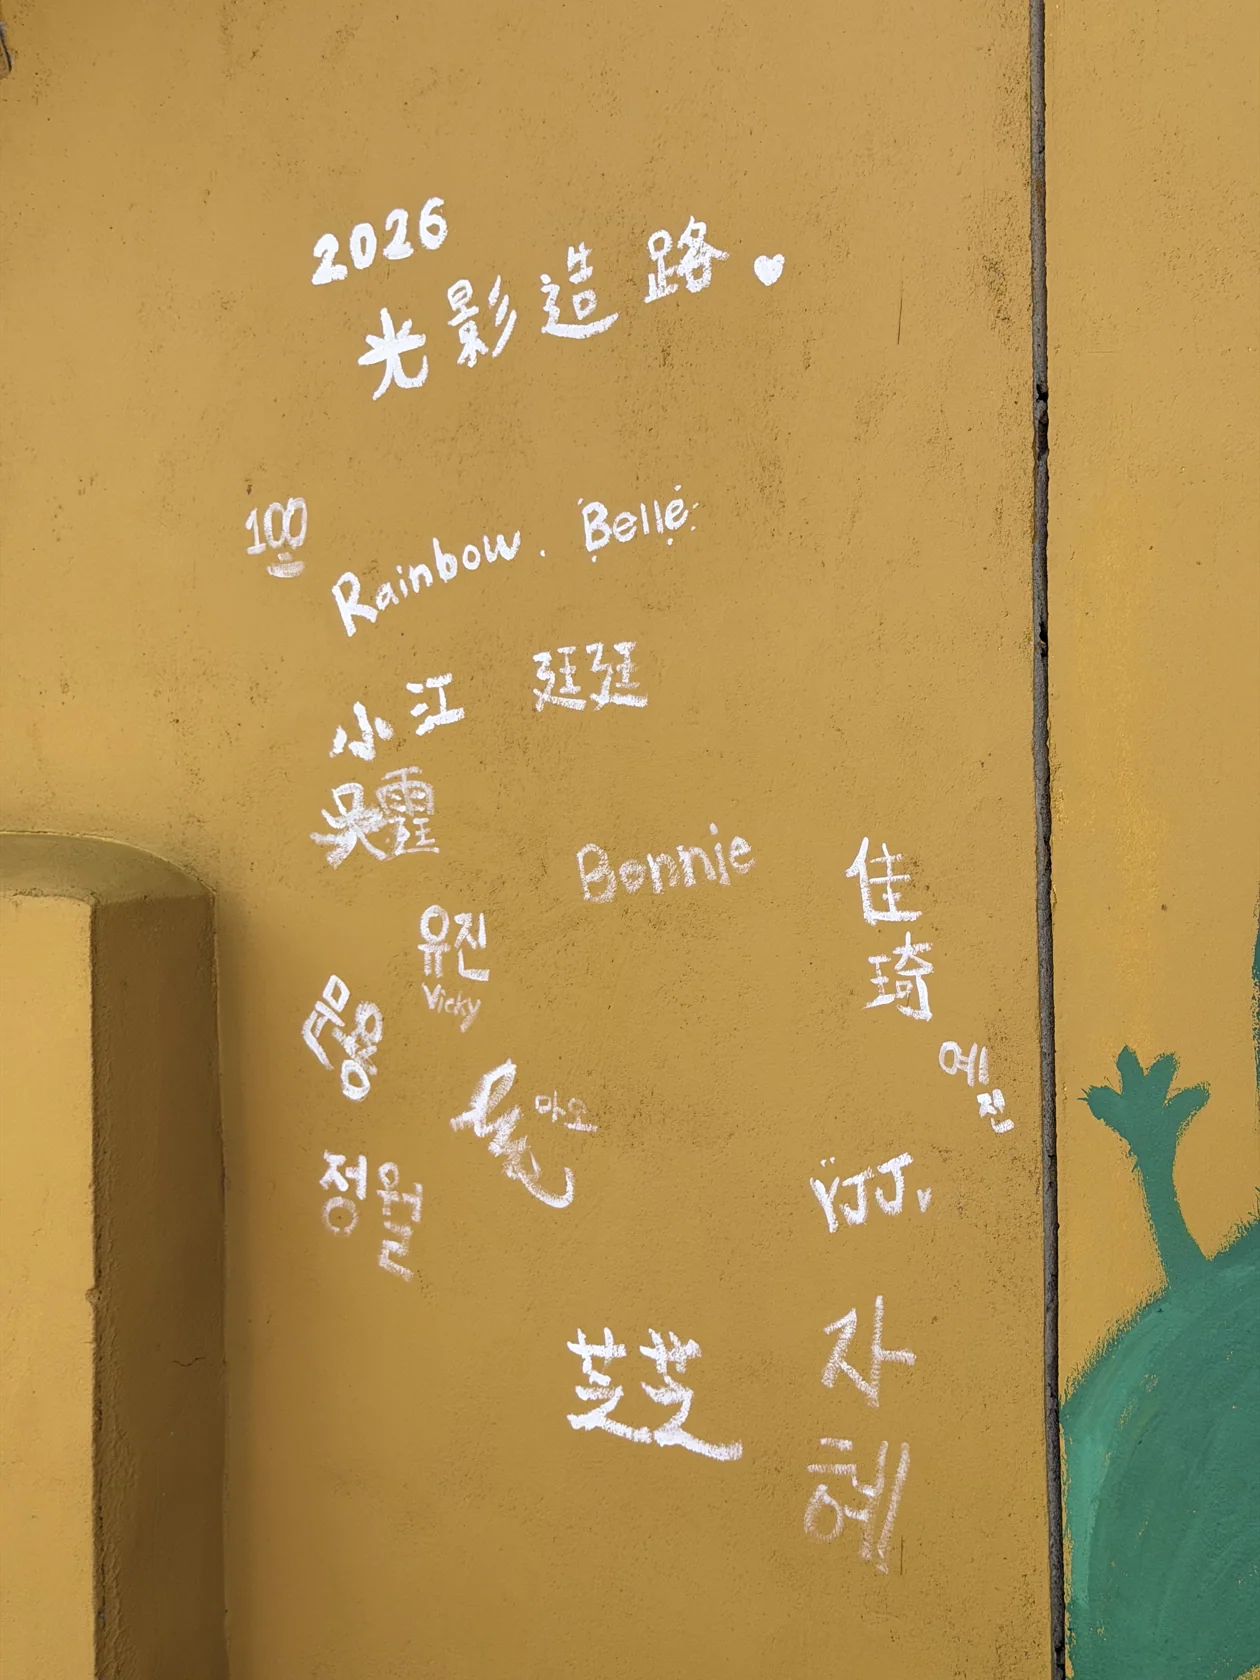 2026
光影造路
100
Rainbow. Belle
小江 廷廷
吳霆
Bonnie
佳琦
유진
Vicky
예진
마오
정월
YJJ
芝芝
자혜